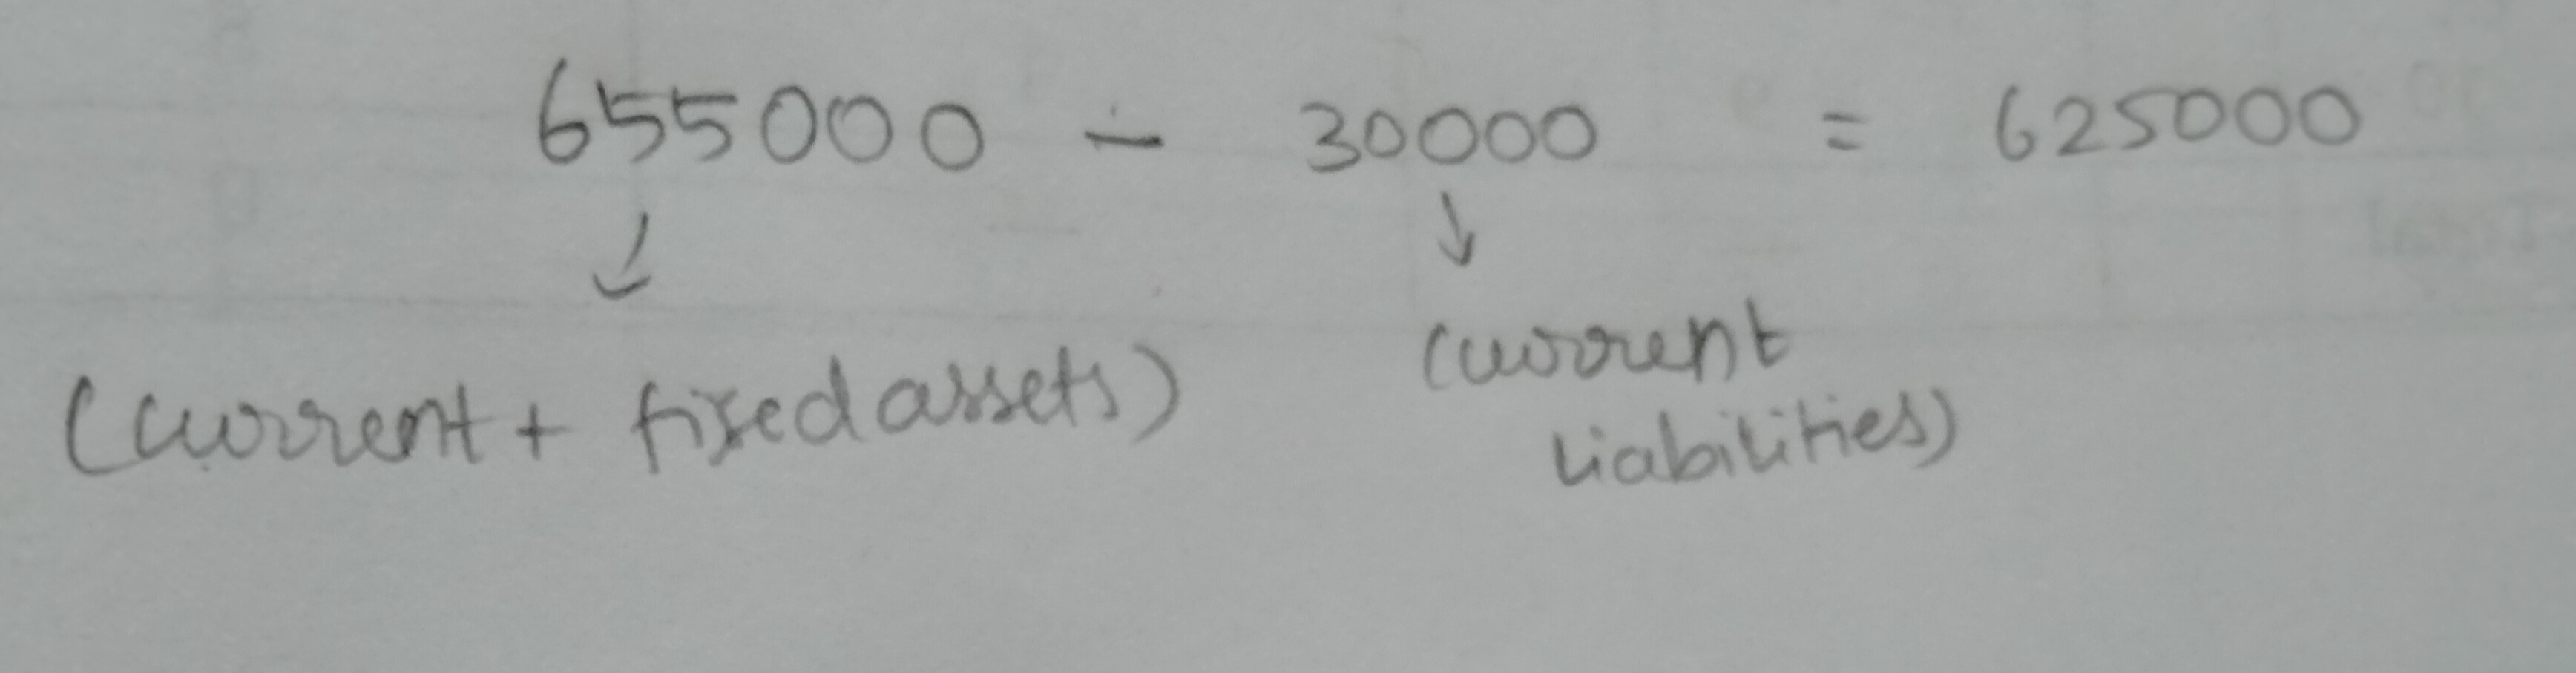 655000 - 30000 = 625000
(current + fixed assets)
(current
liabilities)